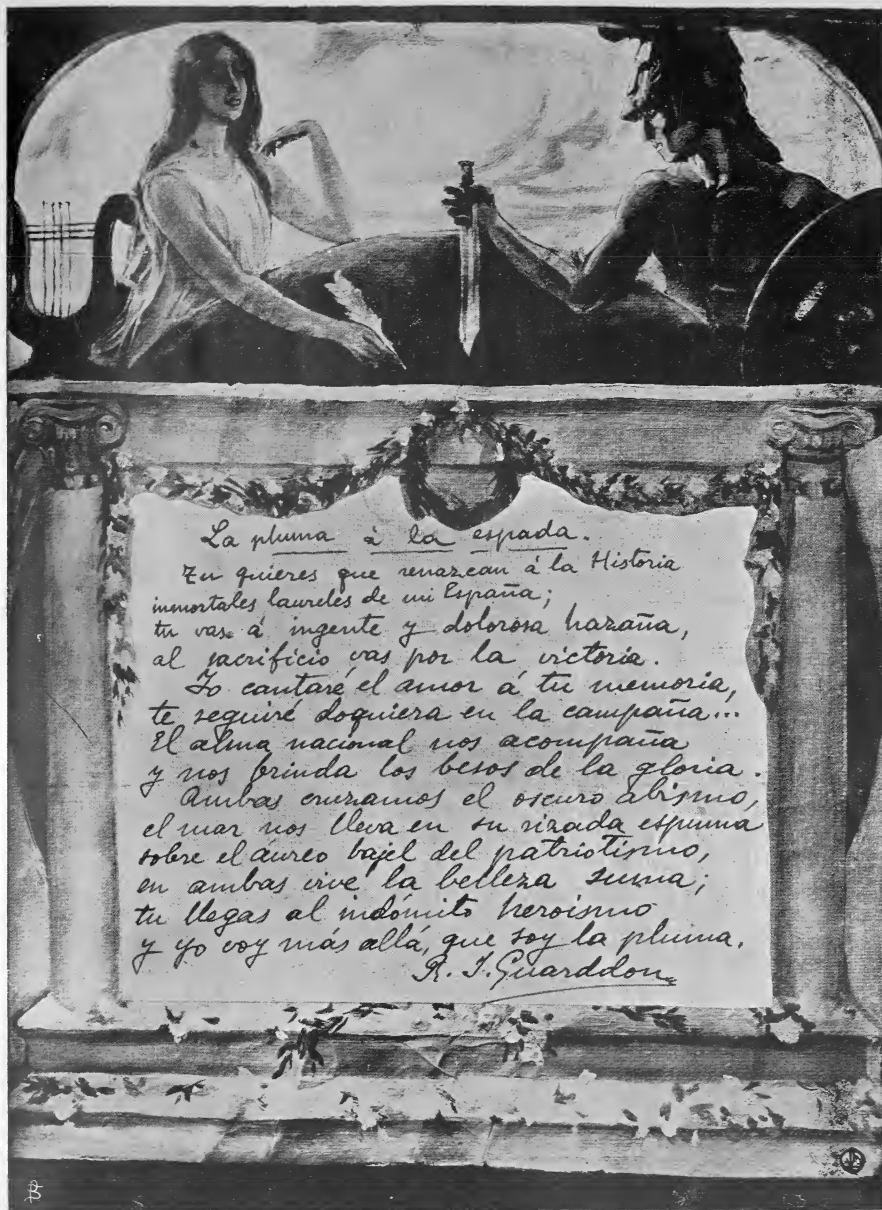 La pluma à la espada.
Tu quieres que renazcan á la Historia
inmortales laureles de mi España;
tu vas á ingente y dolorosa hazaña,
al sacrificio vas por la victoria.
Yo cantaré el amor á tu memoria,
te seguiré doquiera en la campaña...
El alma nacional nos acompaña
y nos brinda los besos de la gloria.
Ambas cruzamos el oscuro abismo,
el mar nos lleva en su rizada espuma
sobre el áureo bajel del patriotismo,
en ambas vive la belleza suma;
tu llegas al indómito heroismo
y yo voy más allá, que soy la pluma.
R. J. Guarddon